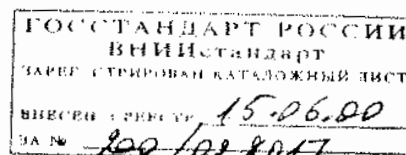 ГОССТАНДАРТ РОССИИ
ВНИИстандарт
ЗАРЕГИСТРИРОВАН КАТАЛОЖНЫЙ ЛИСТ
ВНЕСЕН В РЕЕСТР 15.06.00
ЗА № 200/